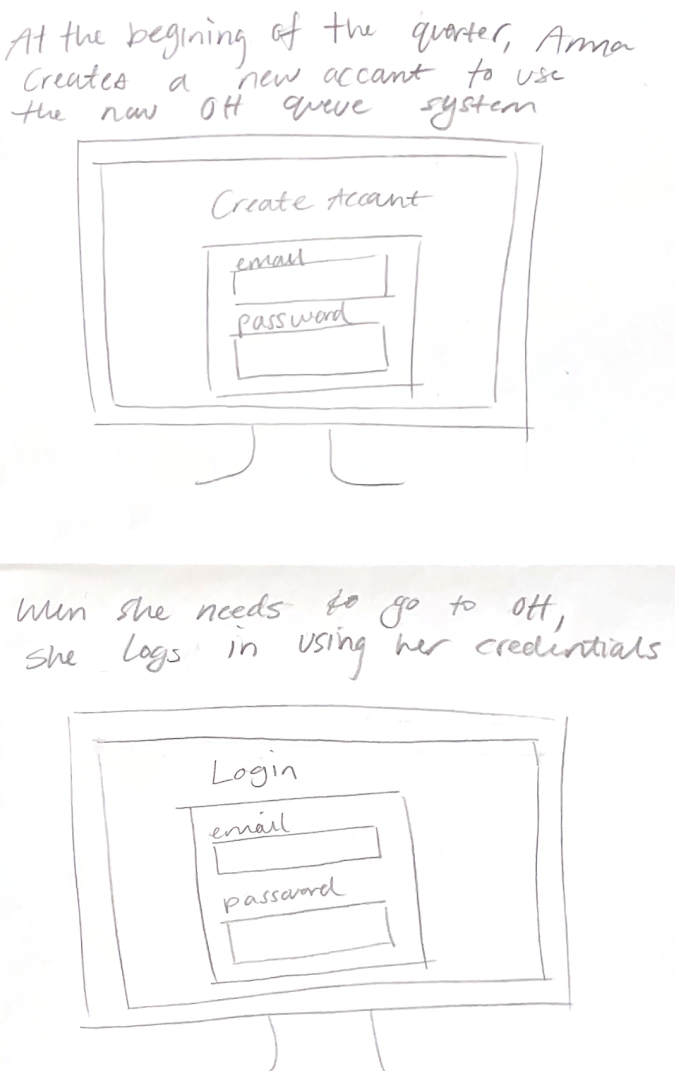 At the begining of the quarter, Anna
creates a new accant to use
the new OH queue system
Create Accant
email
password
When she needs to go to OH,
she logs in using her credentials
Login
email
password